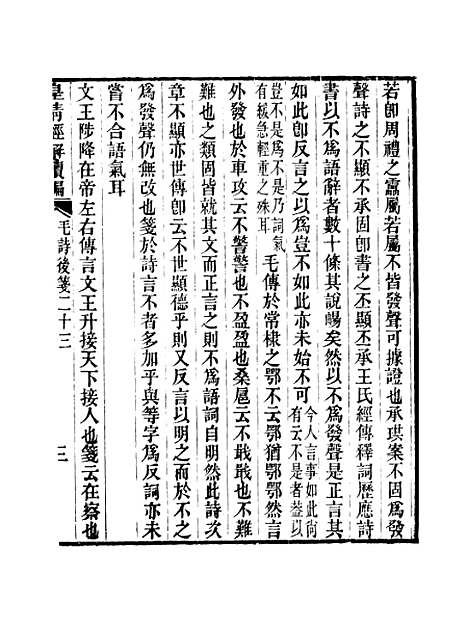 若卽周禮之肅屬若屬不皆發聲可據證也承珙案不固爲發
聲詩之不顯不承固卽書之丕顯丕承王氏經傳釋詞歷應詩
書以不爲語辭者數十條其說暢矣然以不爲發聲是正言其
如此卽反言之以爲豈不如此亦未始不可今人言事如此尙有云不是者蓋以
豈不是爲不是乃詞氣有緩急輕重之殊耳毛傳於常棣之鄂不云鄂猶鄂鄂然言
外發也於車攻云不警警也不盈盈也桑扈云不戢戢也不難
難也之類固皆就其文而正言之則不爲語詞自明然此詩次
章不顯亦世傳卽云不世顯德乎則又反言以明之而於不之
爲發聲仍無改也箋於詩言不者多加乎與等字爲反詞亦未
嘗不合語氣耳
文王陟降在帝左右傳言文王升接天下接人也箋云在察也
皇淸經解續編
毛詩後箋二十三
三